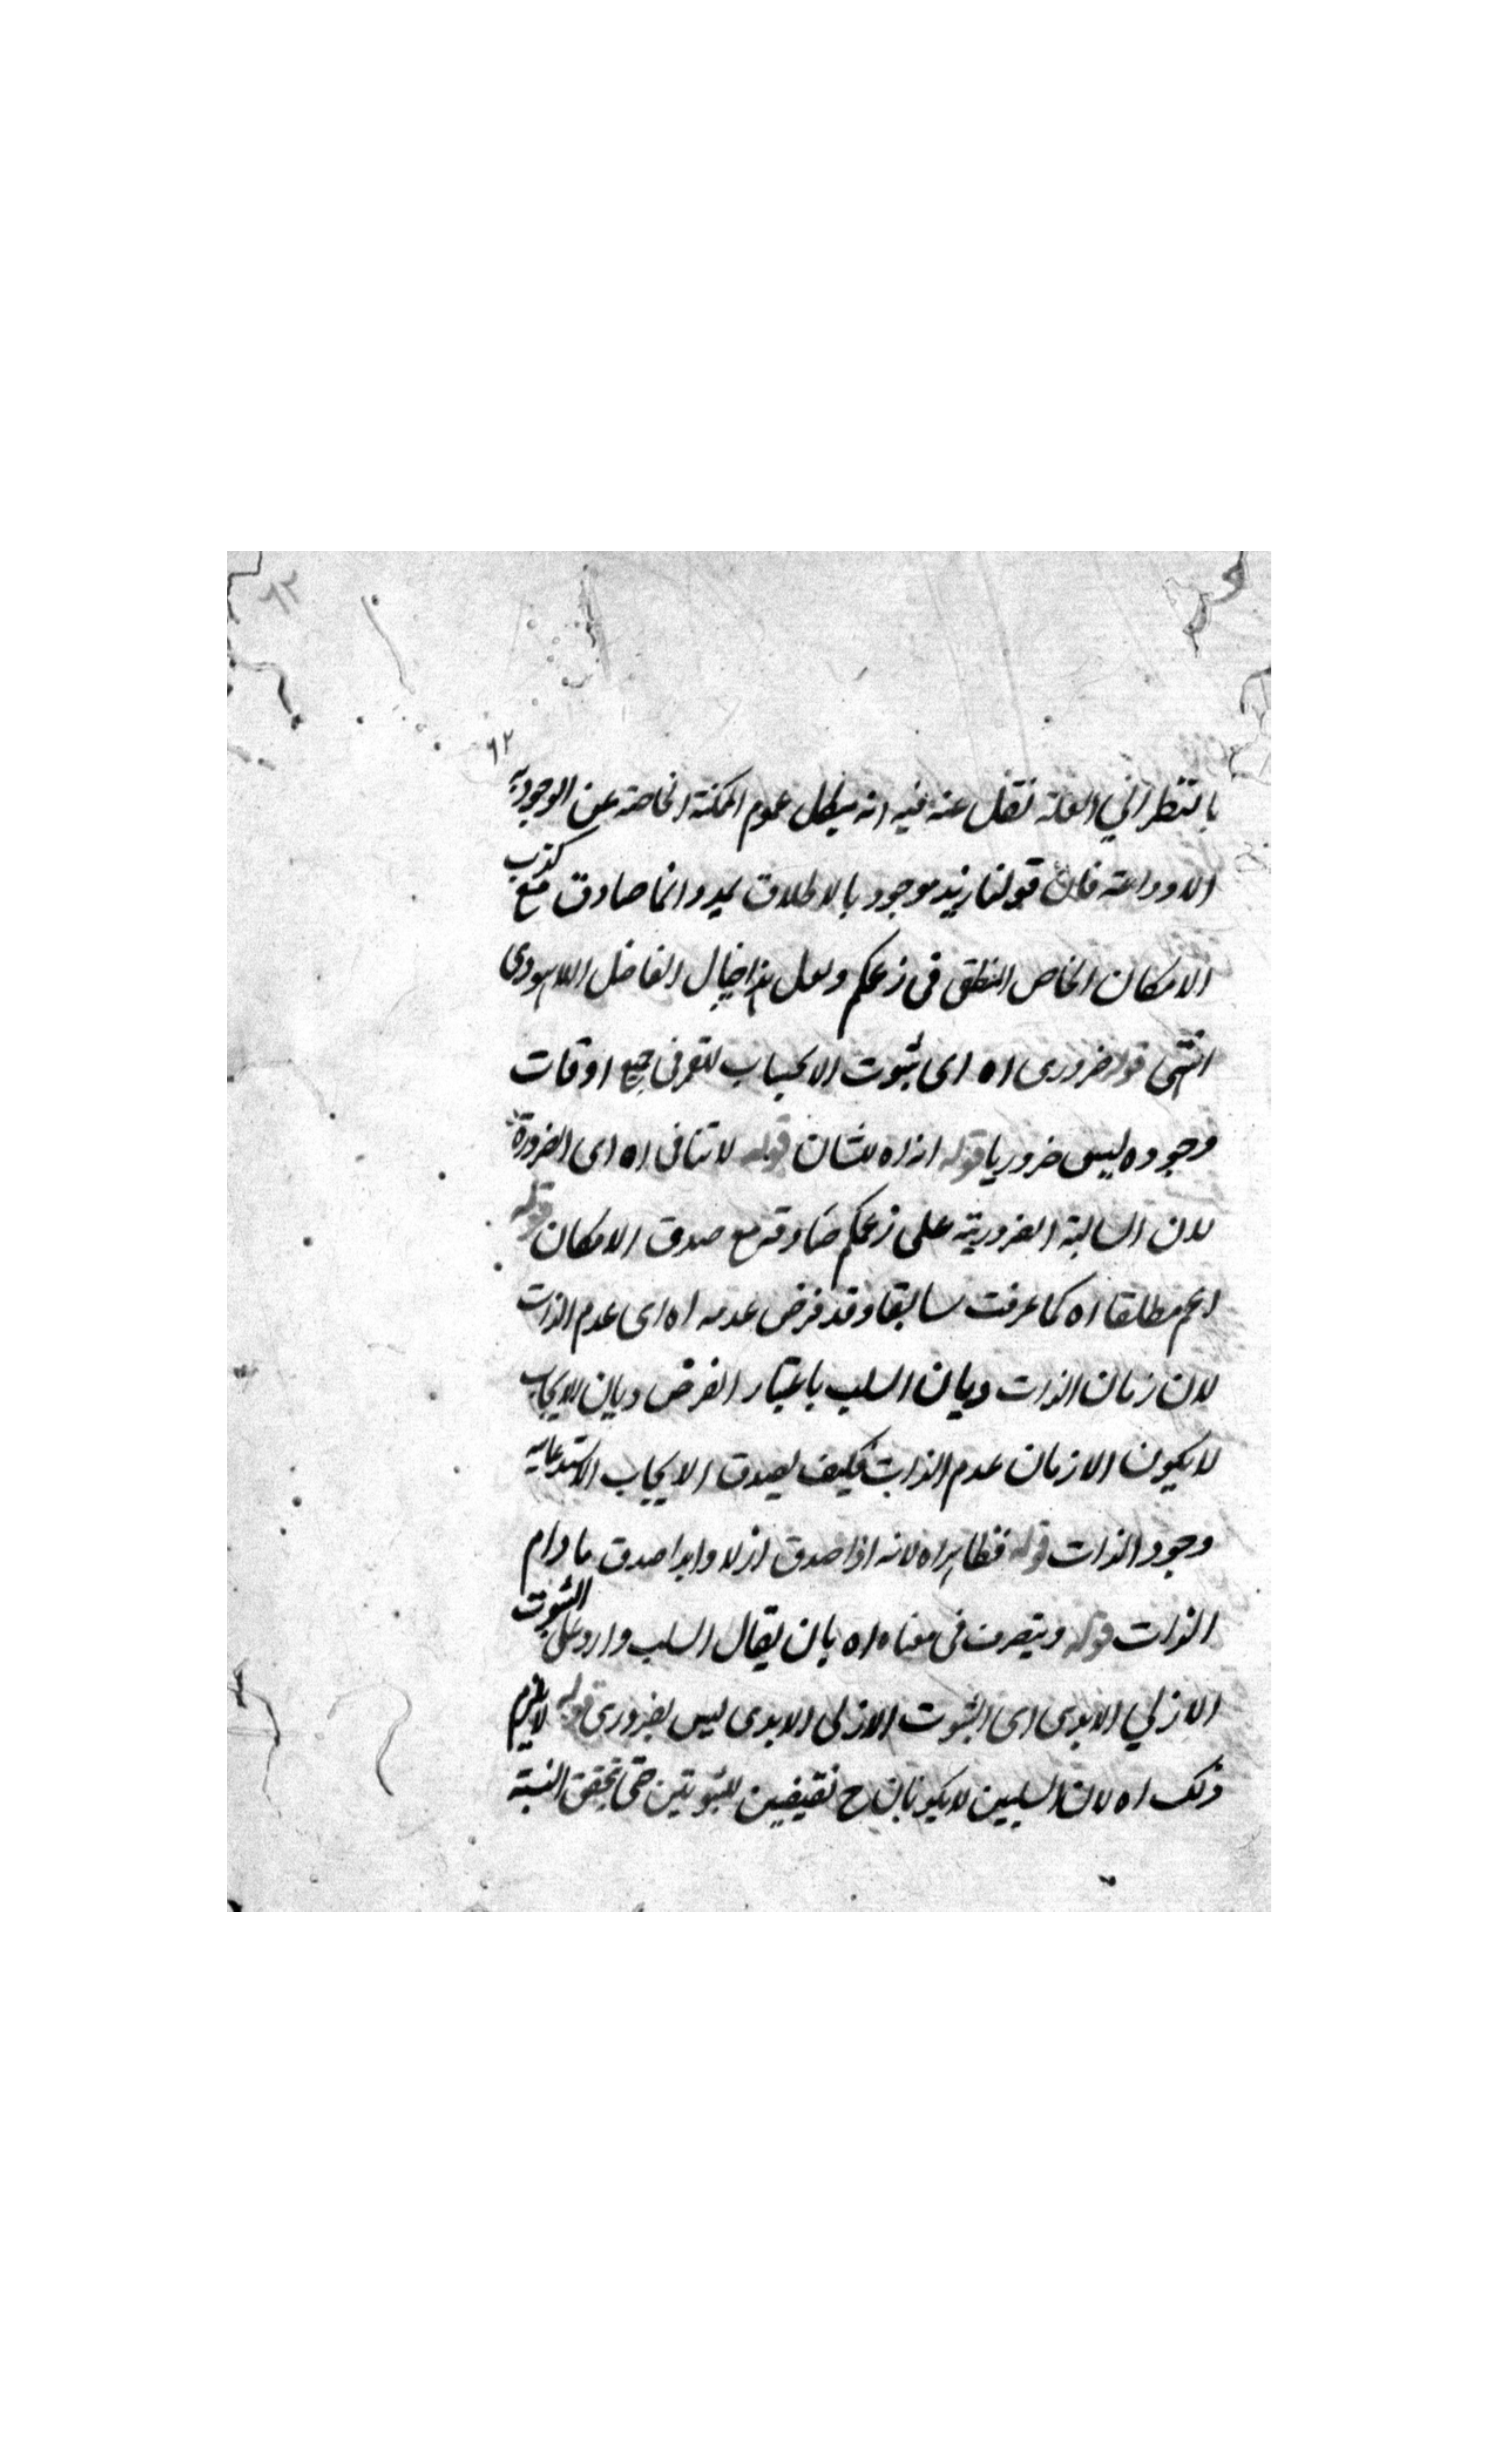 ٦٢
٦٢
بالنظر الي العلة نقل عنه فيه انه يبطل عموم الممكنة الخاصة عن الوجودية
اللادائمة فان قولنا زيد موجود بالاطلاق لا دائما صادق مع كذب
الامكان الخاص المنطقى فى زعمكم ولعل هذا خيال الفاضل اللاهورى
انتهى قوله ضرورى اه اى ثبوت الايجاب للقمر فى جميع اوقات
وجوده ليس ضروريا قوله اذ اه للشان قوله لا تنافى اه اى الضرورة
لان السالبة الضرورية على زعمكم صادقة مع صدق الامكان قوله
اعم مطلقا اه كما عرفت سابقا وقد فرض عدمه اه اى عدم الذات
لان زمان الذات زمان السلب باعتبار الفرض وزمان الايجاب
لا يكون الا زمان عدم الذات فكيف يصدق الايجاب لاستدعائه
وجود الذات قوله فظاهر اه لانه اذا صدق ازلا وابدا صدق مادام
الذات قوله ويتصرف فى معناه اه بان يقال السلب وارد على الثبوت
الازلي الابدى اى الثبوت الازلى الابدى ليس بضرورى قوله لا يلزم
ذلك اه لان السلبين لا يكونان ح نقيضين للثبوتين حتى تحقق النسبة